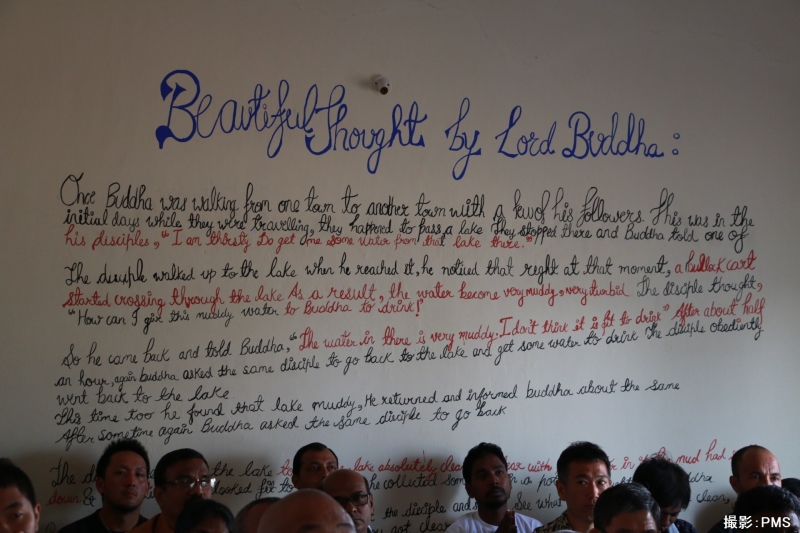 Beautiful Thought by Lord Buddha:
Once Buddha was walking from one town to another town with a few of his followers. This was in the
initial days while they were travelling, they happend to pass a lake They stopped there and Buddha told one of
his disciples, "I am thirsty Do get me some water from that lake there."
The disciple walked up to the lake when he reached it, he noticed that right at that moment, a bullock cart
started crossing through the lake As a result, the water become very muddy, very turbid. The disciple thought,
"How can I give this muddy water to Buddha to drink!"
So he came back and told Buddha, "The water in there is very muddy. I don't think it is fit to drink" After about half
an hour, again buddha asked the same disciple to go back to the lake and get some water to drink The disciple obediently
went back to the lake
This time too he found that lake muddy, He returned and informed buddha about the same
After sometime again Buddha asked the same disciple to go back
The the lake lake absolutely clear with in it's mud had
down & looked fit to he collected some in a Buddha
and See what clear,
not clear
撮影：PMS